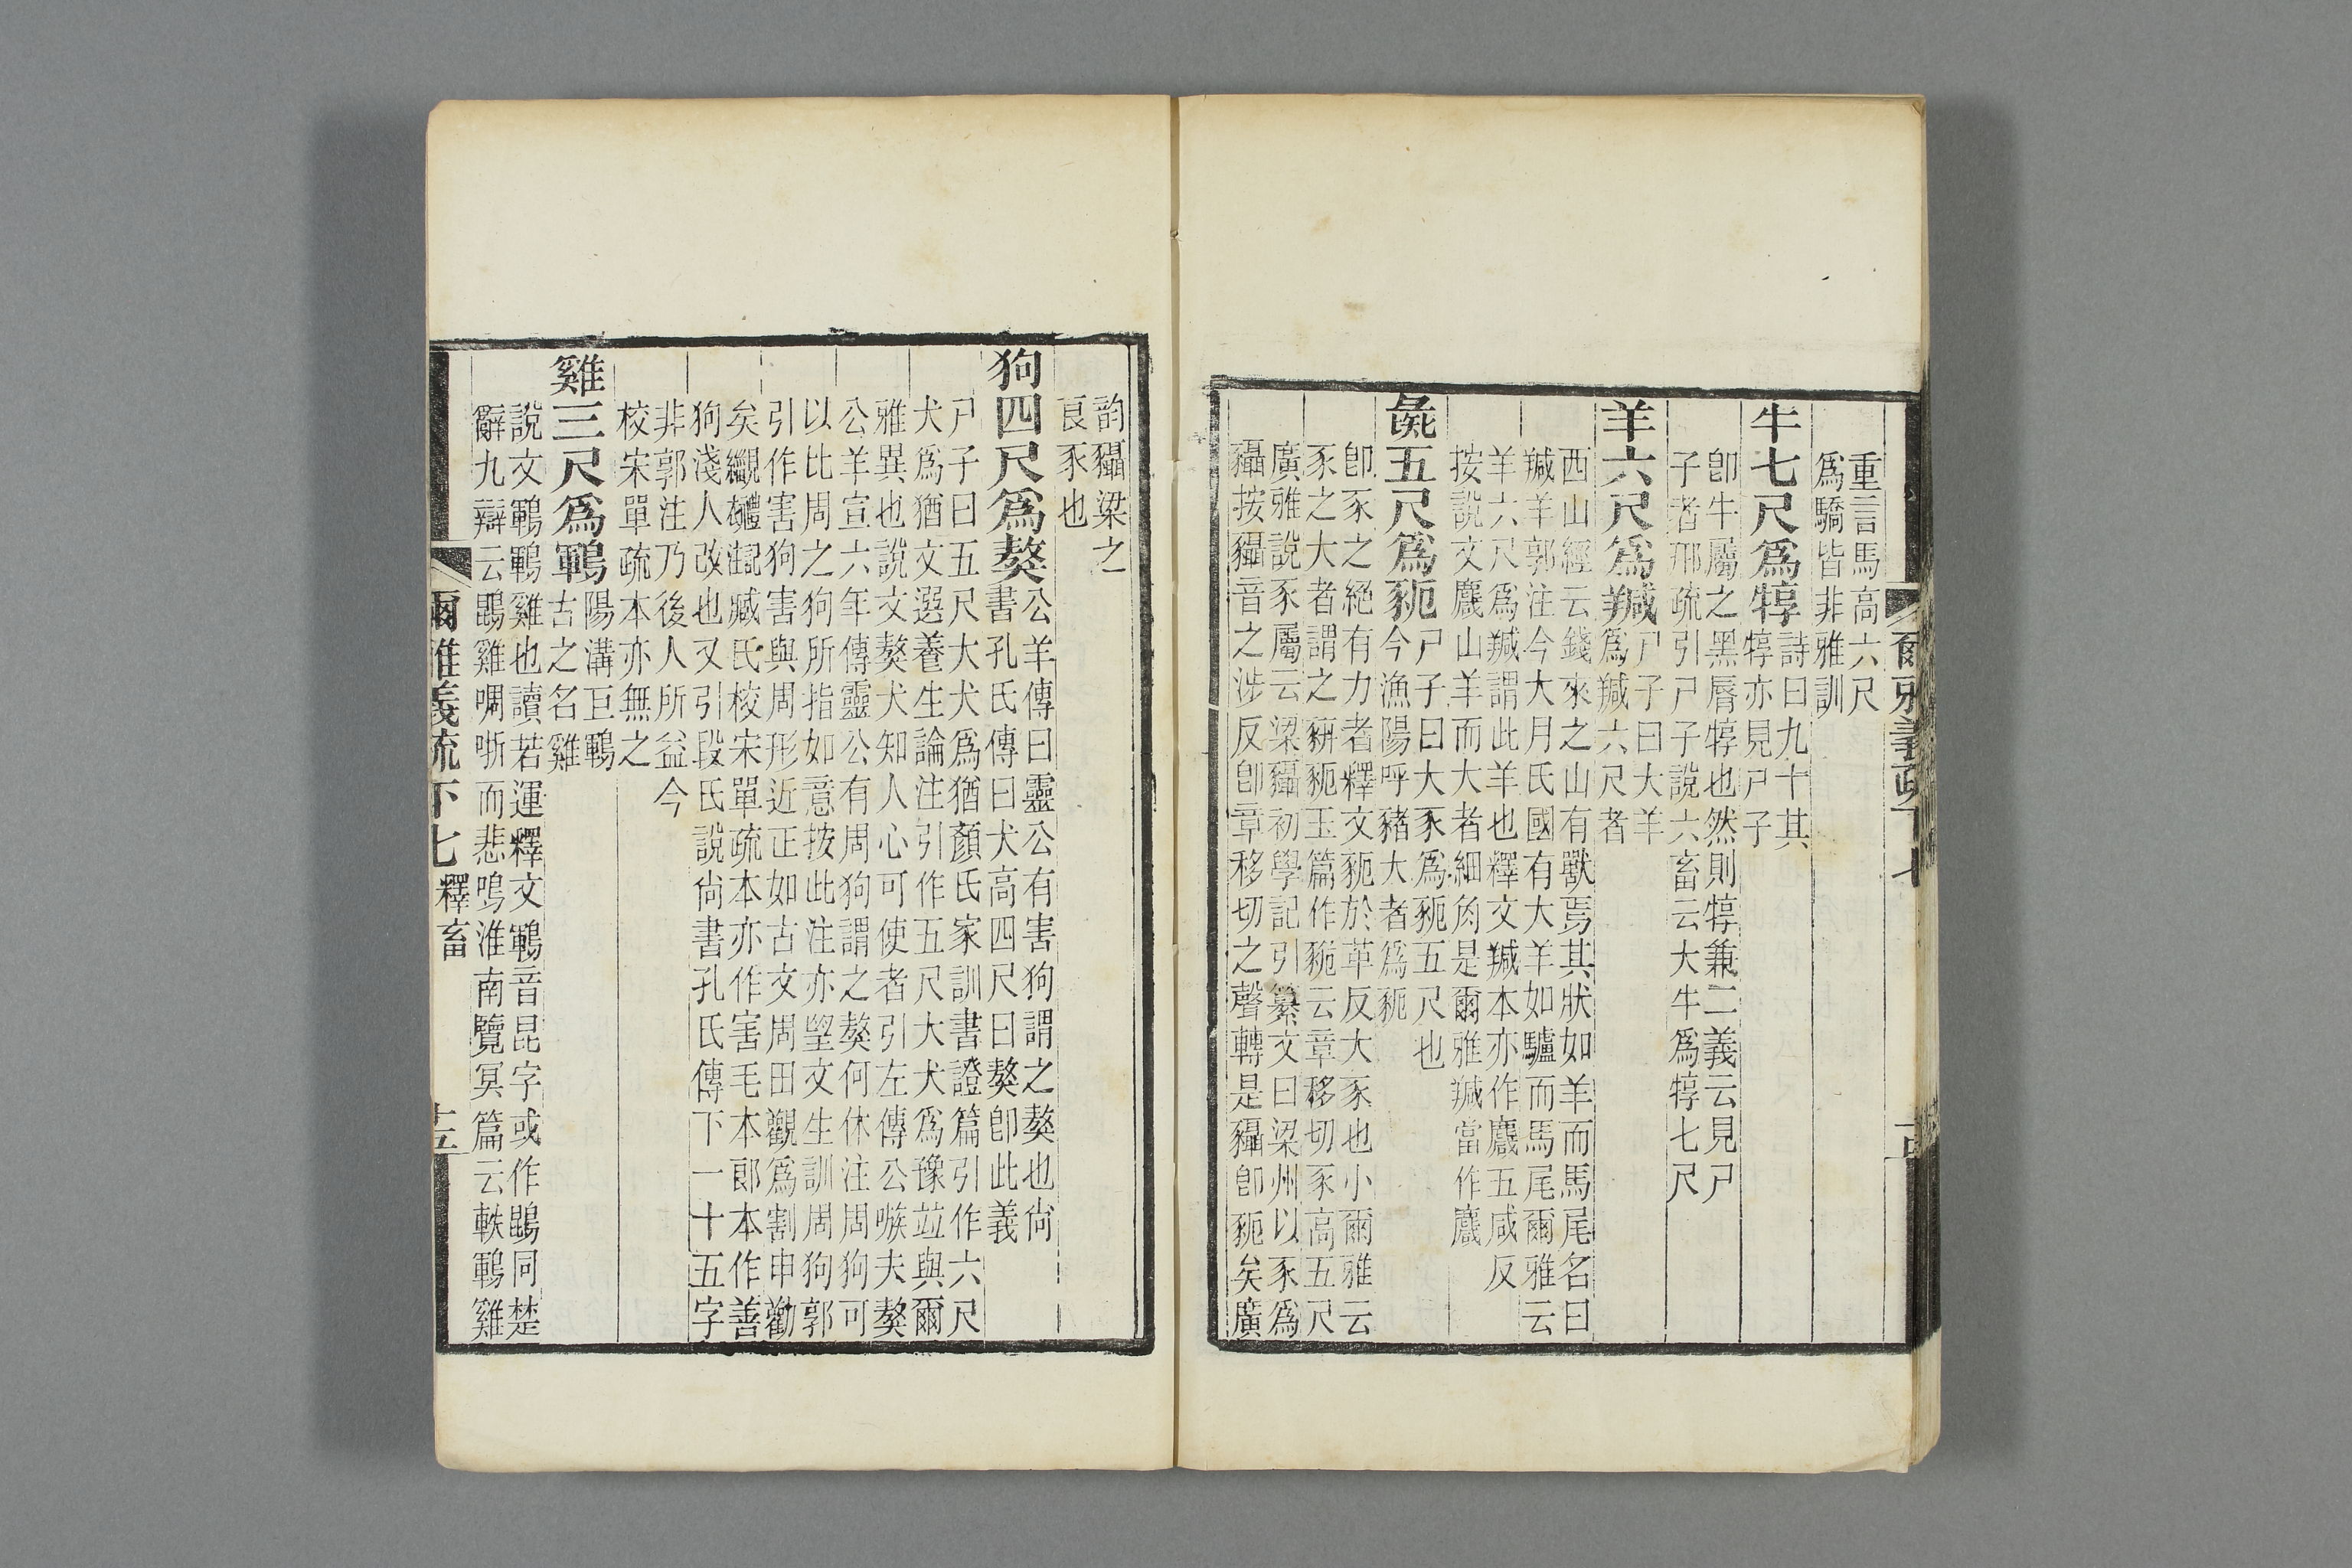 爾雅義疏下七
重言馬高六尺
爲驕皆非雅訓
牛七尺爲犉詩曰九十其
犉亦見尸子
卽牛屬之黑脣犉也然則犉兼二義云見尸
子者邢疏引尸子說六畜云大牛爲犉七尺
羊六尺爲羬尸子曰大羊
爲羬六尺者
西山經云錢來之山有獸焉其狀如羊而馬尾名曰
羬羊郭注今大月氏國有大羊如驢而馬尾爾雅云
羊六尺爲羬謂此羊也釋文羬本亦作麙五咸反
按說文麙山羊而大者細角是爾雅羬當作麙
彘五尺爲豟尸子曰大豕爲豟五尺也
今漁陽呼豬大者爲豟
卽豕之絕有力者釋文豟於革反大豕也小爾雅云
豕之大者謂之豣豟玉篇作豟云章移切豕高五尺
廣雅說豕屬云梁䝕初學記引纂文曰梁州以豕爲
䝕按䝕音之涉反卽章移切之聲轉是䝕卽豟矣廣
韵䝕梁之
良豕也
狗四尺爲獒公羊傳曰靈公有害狗謂之獒也尙
書孔氏傳曰犬高四尺曰獒卽此義
尸子曰五尺大犬爲猶顏氏家訓書證篇引作六尺
犬爲猶文選養生論注引作五尺大犬爲豫竝與爾
雅異也說文獒犬知人心可使者引左傳公嗾夫獒
公羊宣六年傳靈公有周狗謂之獒何休注周狗可
以比周之狗所指如意按此注亦望文生訓周狗郭
引作害狗害與周形近正如古文周田觀爲割申勸
矣繼觀禮記臧氏校宋單疏本亦作害毛本郎本作善
狗淺人改也又引段氏說尙書孔氏傳下一十五字
非郭注乃後人所益今
校宋單疏本亦無之
雞三尺爲鶤陽溝巨鶤
古之名雞
說文鶤鶤雞也讀若運釋文鶤音昆字或作鵾同楚
辭九辯云鵾雞啁哳而悲鳴淮南覽冥篇云軼鶤雞
爾雅義疏下七 釋畜 十五